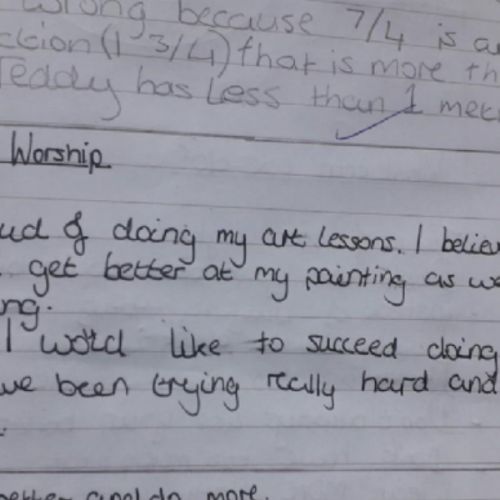 wrong because 7/4 is a
ction (1 3/4) that is more th
Teddy has less than 1 met
Worship
ud of doing my art lessons. I believ
get better at my painting as we
ng.
I would like to succeed doing
ve been trying really hard and
better and do more.